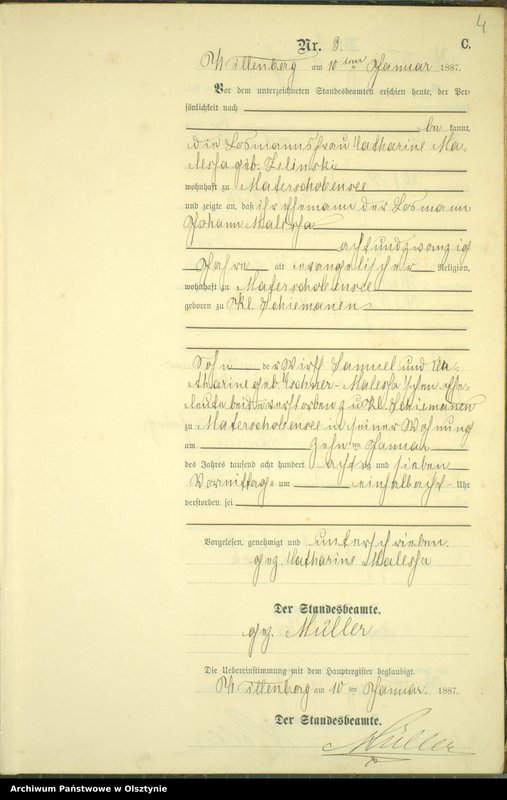 4
Nr. 8. C.
Willenberg am 10ten Januar 1887.
Vor dem unterzeichneten Standesbeamten erschien heute, der Per-
sönlichkeit nach
be kannt,
die Losmannsfrau Catharine Ma-
lessa geb. Zelinski
wohnhaft zu Materschobensee
und zeigte an, daß ihr Ehemann der Losmann
Johann Malessa
achtundzwanzig
Jahre alt evangelischer Religion,
wohnhaft zu Materschobensee
geboren zu Kl. Schiemanen
Sohn der Wirth Samuel und Ca-
tharine geb. Malessa'schen Ehe-
leute beide verstorben zu Kl. Schiemanen
zu Materschobensee in seiner Wohnung
am zehnten Januar
des Jahres tausend acht hundert achtzig und sieben
Vormittags um einhalbacht Uhr
verstorben sei
Vorgelesen, genehmigt und unterschrieben.
gez. Catharine Malessa
Der Standesbeamte.
gez. Müller
Die Uebereinstimmung mit dem Hauptregister beglaubigt.
Willenberg am 10ten Januar. 1887.
Der Standesbeamte.
Müller
Archiwum Państwowe w Olsztynie